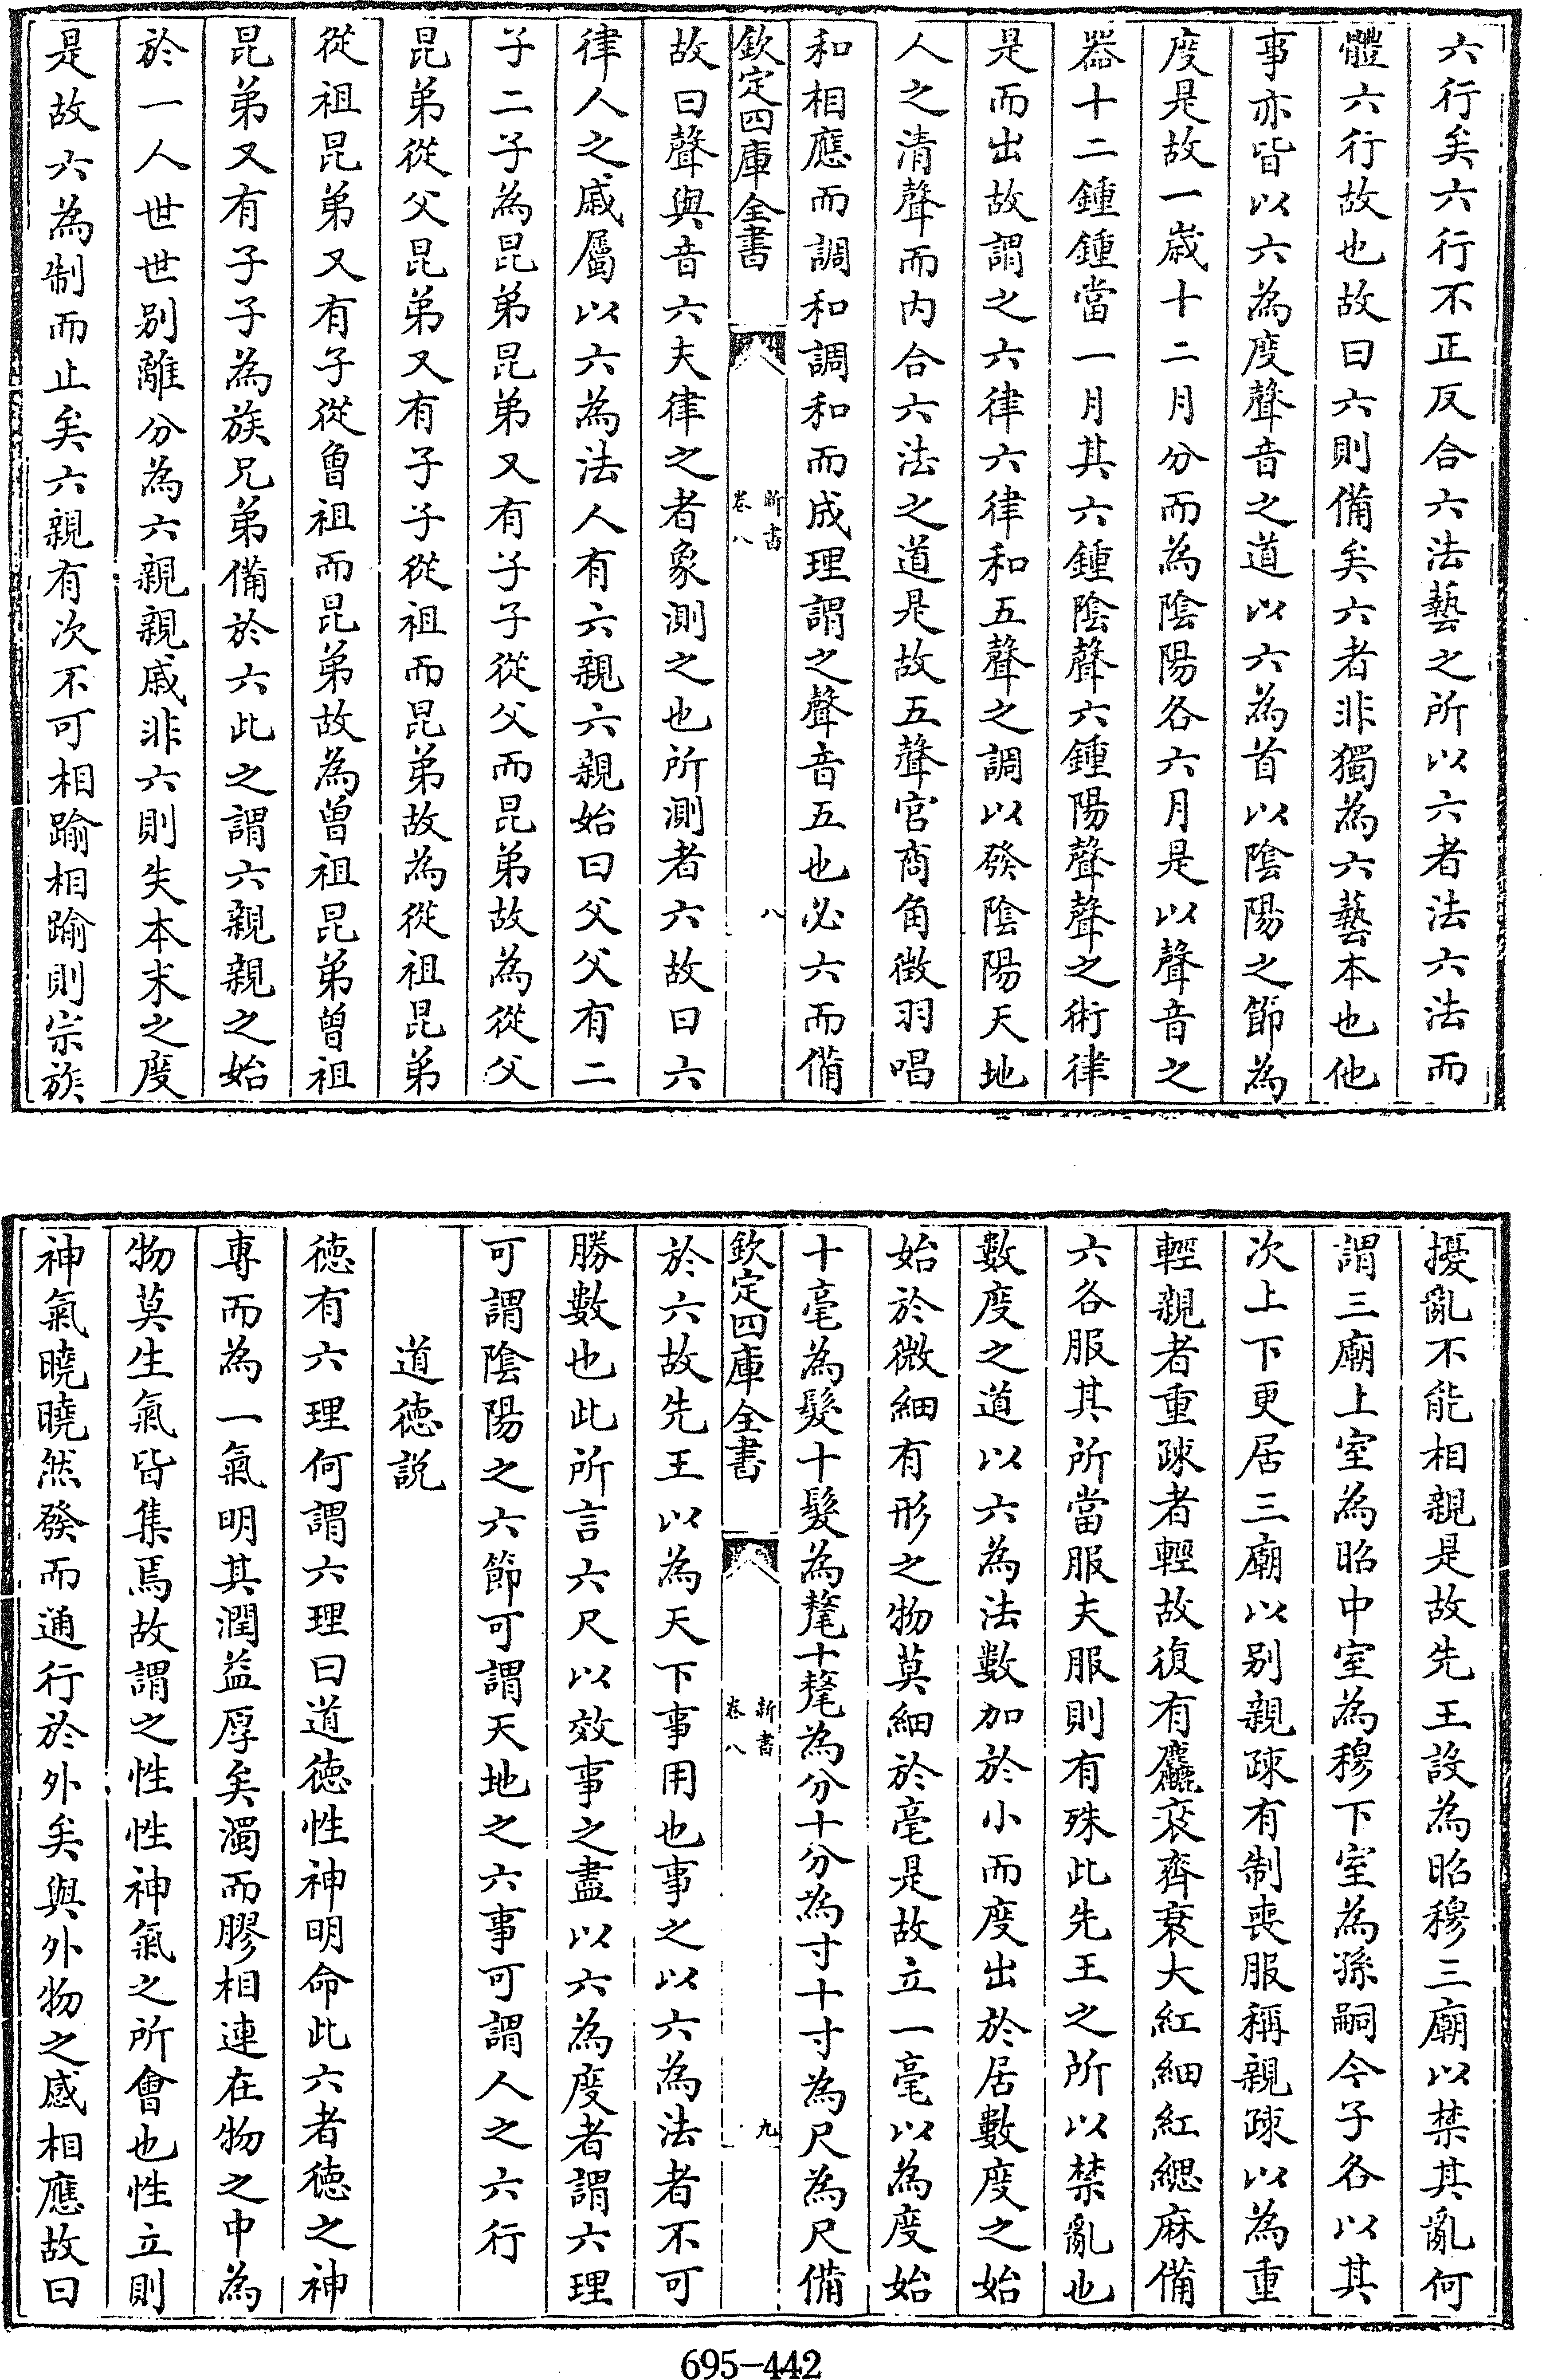 六行矣六行不正反合六法藝之所以六者法六法而
體六行故也故曰六則備矣六者非獨為六藝本也他
事亦皆以六為度聲音之道以六為首以陰陽之節為
度是故一歲十二月分而為陰陽各六月是以聲音之
器十二鍾鍾當一月其六鍾陰聲六鍾陽聲聲之術律
是而出故謂之六律六律和五聲之調以發陰陽天地
人之清聲而内合六法之道是故五聲宫商角徴羽唱
和相應而調和調和而成理謂之聲音五也必六而備
欽定四庫全書
新書
卷八
八
故曰聲與音六夫律之者象測之也所測者六故曰六
律人之戚屬以六為法人有六親六親始曰父父有二
子二子為昆弟昆弟又有子子從父而昆弟故為從父
昆弟從父昆弟又有子子從祖而昆弟故為從祖昆弟
從祖昆弟又有子從曾祖而昆弟故為曾祖昆弟曾祖
昆弟又有子子為族兄弟備於六此之謂六親親之始
於一人世世别離分為六親親戚非六則失本末之度
是故六為制而止矣六親有次不可相踰相踰則宗族
擾亂不能相親是故先王設為昭穆三廟以禁其亂何
謂三廟上室為昭中室為穆下室為孫嗣令子各以其
次上下更居三廟以别親疎有制喪服稱親疎以為重
輕親者重疎者輕故復有麤衰齊衰大紅細紅緦麻備
六各服其所當服夫服則有殊此先王之所以禁亂也
數度之道以六為法數加於小而度出於居數度之始
始於微細有形之物莫細於毫是故立一毫以為度始
十毫為髮十髮為氂十氂為分十分為寸十寸為尺為尺備
欽定四庫全書
新書
卷八
九
於六故先王以為天下事用也事之以六為法者不可
勝數也此所言六尺以效事之盡以六為度者謂六理
可謂陰陽之六節可謂天地之六事可謂人之六行
道徳説
徳有六理何謂六理曰道徳性神明命此六者徳之神
專而為一氣明其潤益厚矣濁而膠相連在物之中為
物莫生氣皆集焉故謂之性性神氣之所會也性立則
神氣曉曉然發而通行於外矣與外物之感相應故曰
695-442